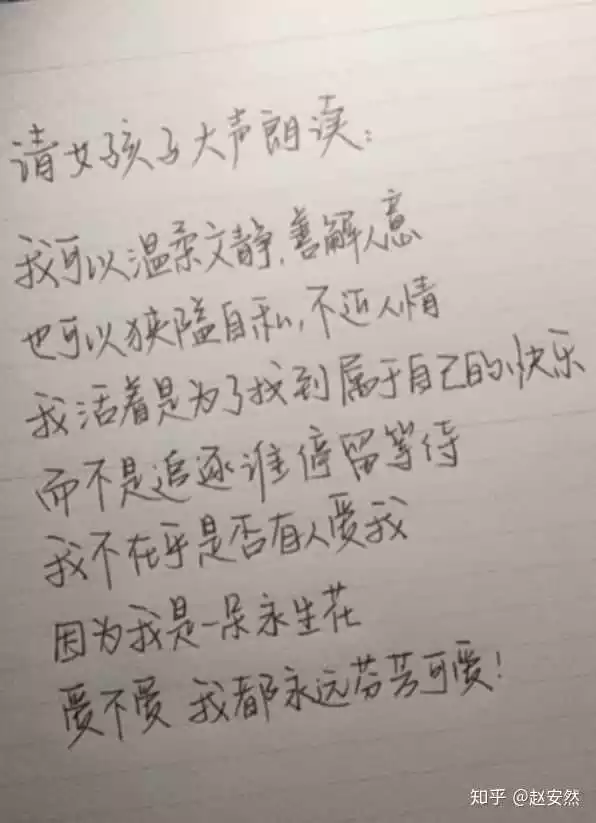 请女孩子大声朗读：
我可以温柔文静、善解人意
也可以狭隘自私，不近人情
我活着是为了找到属于自己的快乐
而不是追逐谁停留等待
我不在乎是否有人爱我
因为我是一朵永生花
爱不爱 我都永远芬芳可爱！
知乎 @赵安然